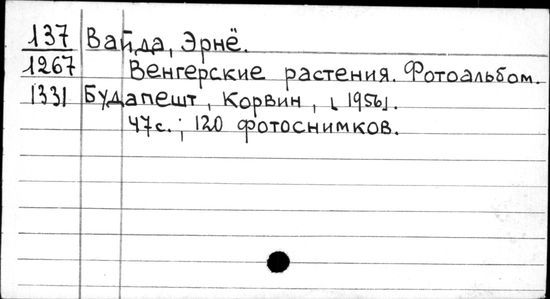 137 Вайда, Эрнё.
1267 Венгерские растения. Фотоальбом.
1331 Будапешт, Корвин, [1956].
47с.; 120 фотоснимков.